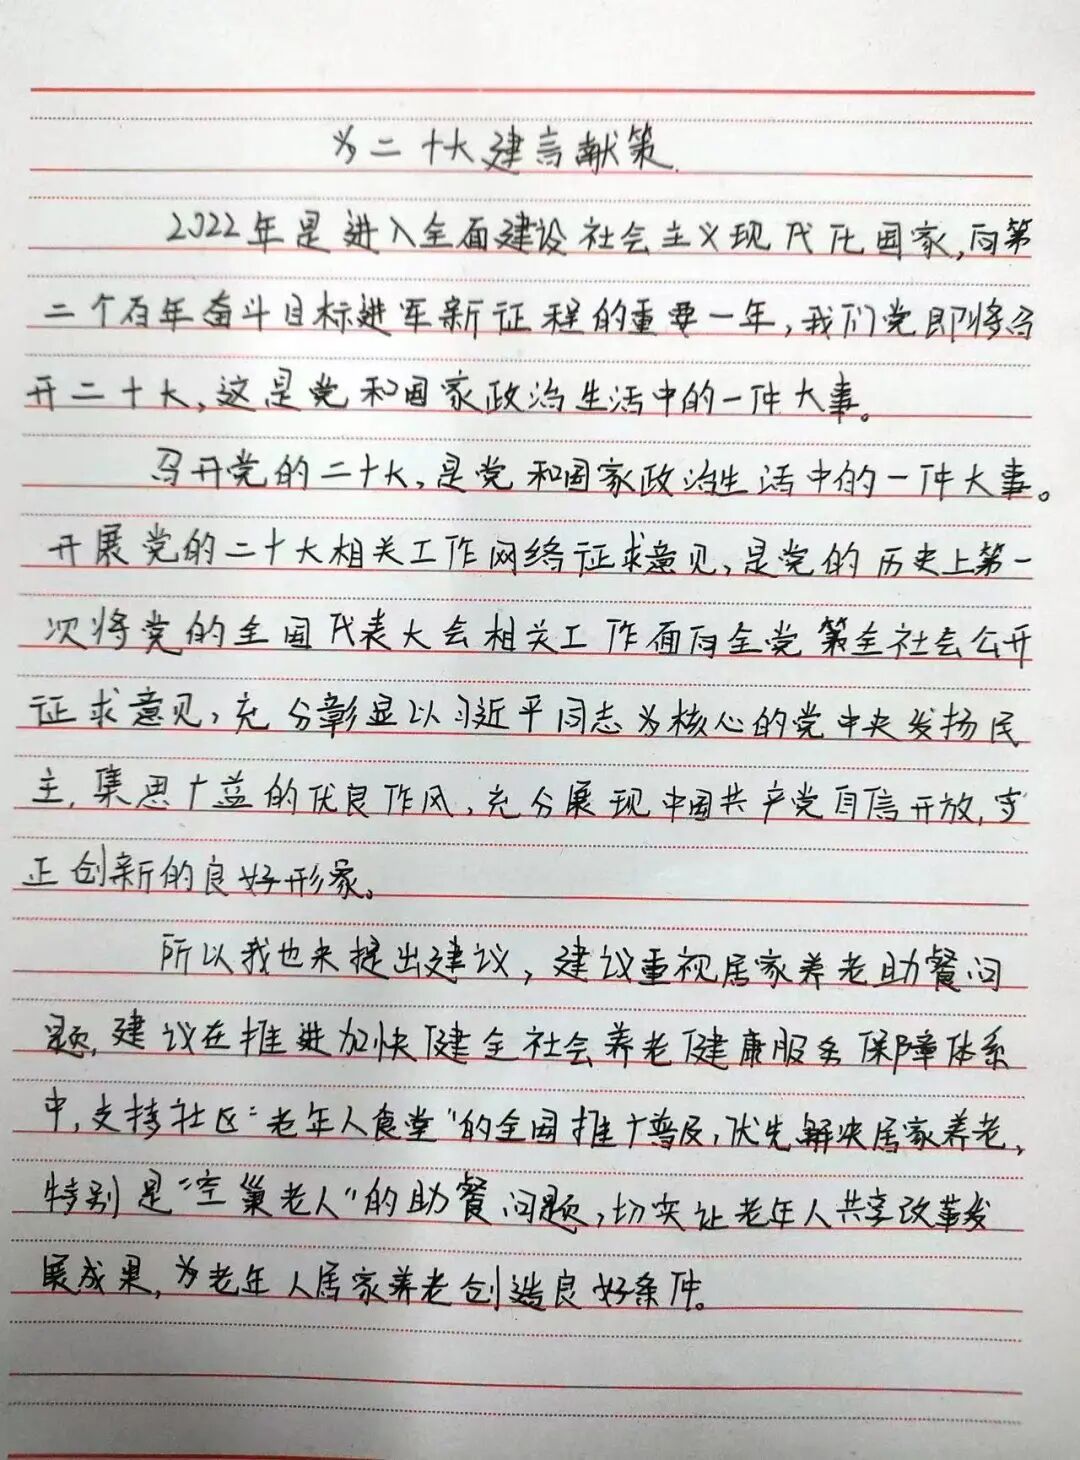 为二十大建言献策.
2022年是进入全面建设社会主义现代化国家,向第
二个百年奋斗目标进军新征程的重要一年,我们党即将召
开二十大,这是党和国家政治生活中的一件大事。
召开党的二十大,是党和国家政治生活中的一件大事。
开展党的二十大相关工作网络征求意见,是党的历史上第一
次将党的全国代表大会相关工作面向全党第全社会公开
征求意见,充分彰显以习近平同志为核心的党中央发扬民
主,集思广益的优良作风,充分展现中国共产党自信开放,守
正创新的良好形象。
所以我也来提出建议,建议重视居家养老助餐问
题,建议在推进加快健全社会养老健康服务保障体系
中,支持社区“老年人食堂”的全国推广普及,优先解决居家养老,
特别是“空巢老人”的助餐问题,切实让老年人共享改革发
展成果,为老年人居家养老创造良好条件。